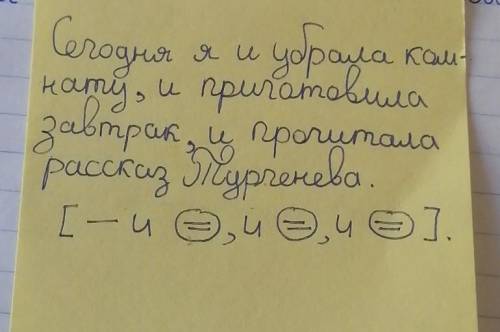 Сегодня я и убрала ком-
нату, и приготовила
завтрак, и прочитала
рассказ Тургенева.
[ — и =, и =, и = ].